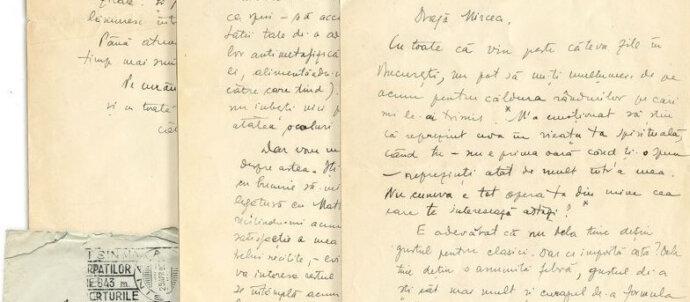 lămuresc într
Până atunci
timp mai
și cu toată
ce spui – să acc
tății tale de a
lor antimetafizică
ei, alimentându
către care tind).
nu iubești nici
atâtea ocoluri
Dar vom
despre astea. Ști
legătură cu Mat
satisfacție a mea
va interesa
se întâmplă acum
Dragă Mircea,
Cu toate că vin peste câteva zile în
București, nu pot să nu-ți mulțumesc de pe
acum pentru căldura rândurilor pe cari
mi le-ai trimis. M'a emoționat să știu
că reprezint ceva în vieața ta spirituală,
când tu – nu e prima oară când ți-o spun
– reprezinți atât de mult într'a mea.
Nu cumva e tot opera ta din mine cea
care te interesează astăzi?
E adevărat că nu dela tine dețin
gustul pentru clasici. Dar ce importă asta? Dela
tine dețin o anumită febră, gustul de a
ști cât mai mult și curajul de a formula
RPAȚILOR
843 m.
RTURILE